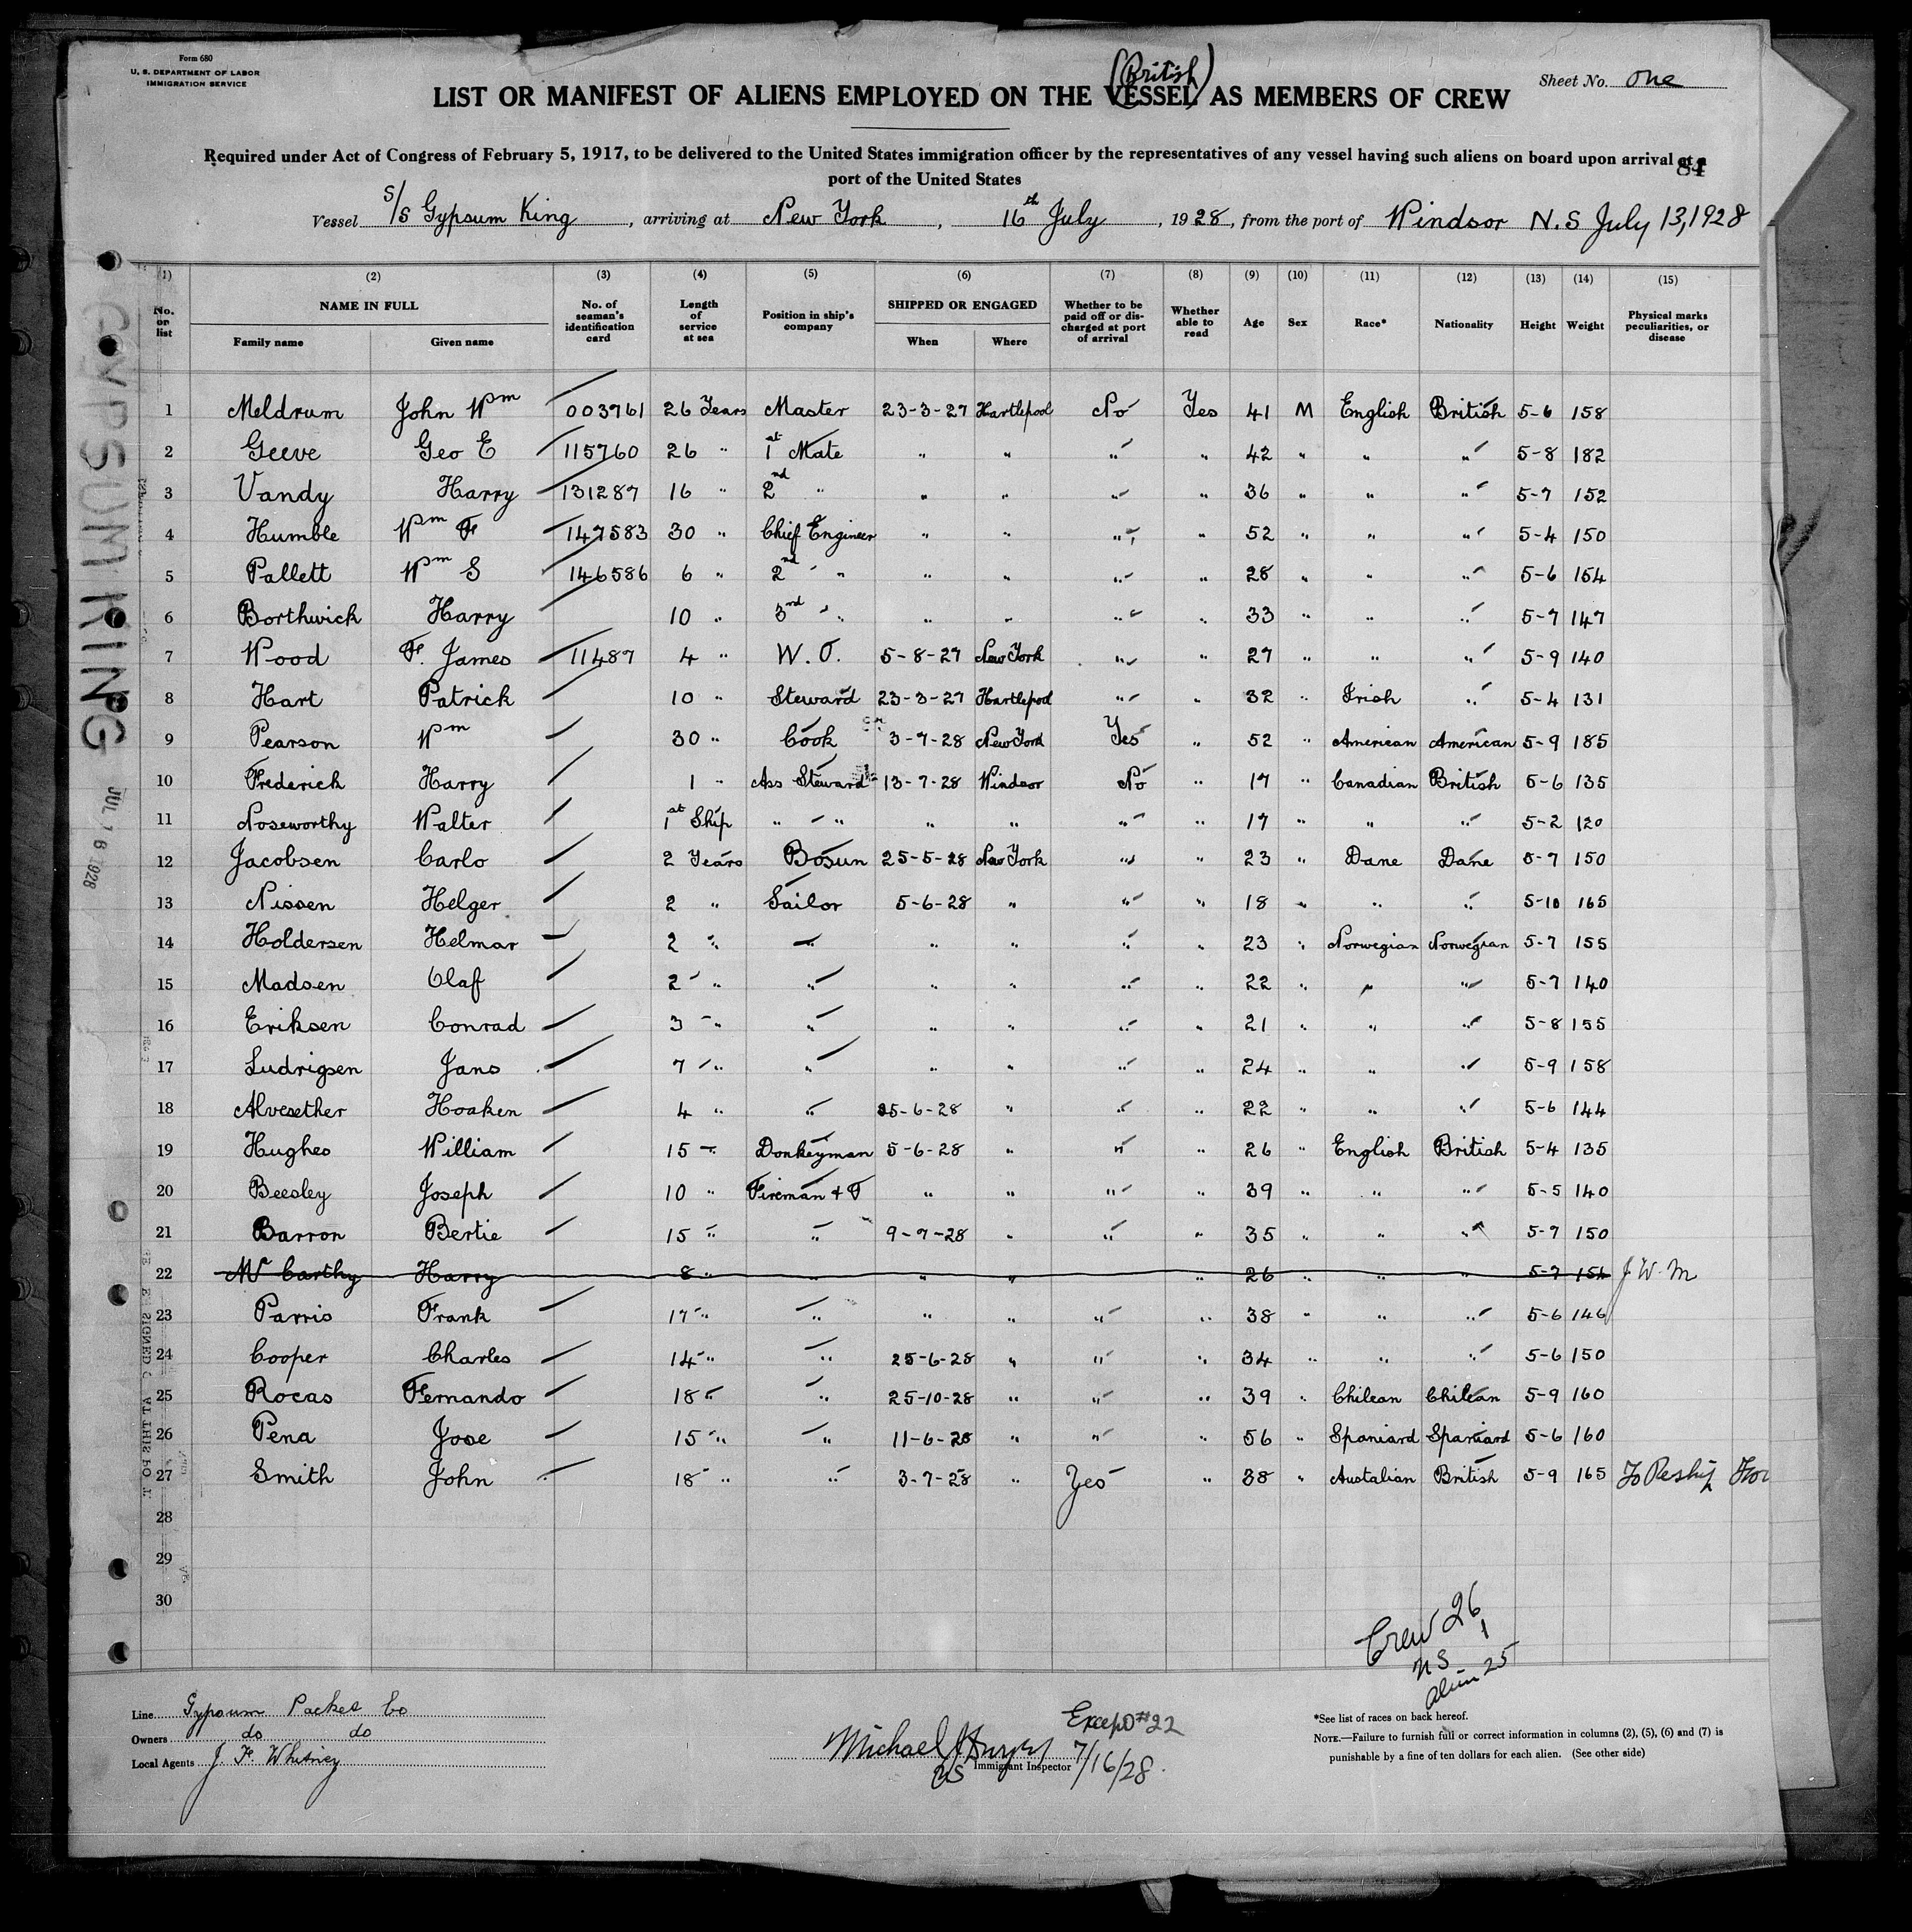 Form 680
U. S. DEPARTMENT OF LABOR
IMMIGRATION SERVICE
(British)
Sheet No. one
LIST OR MANIFEST OF ALIENS EMPLOYED ON THE VESSEL AS MEMBERS OF CREW
Required under Act of Congress of February 5, 1917, to be delivered to the United States immigration officer by the representatives of any vessel having such aliens on board upon arrival at a
port of the United States
84
Vessel S/S Gypsum King, arriving at New York, 16th July, 1928, from the port of Windsor N.S July 13, 1928
(1) (2) (3) (4) (5) (6) (7) (8) (9) (10) (11) (12) (13) (14) (15)
No. or list NAME IN FULL Family name Given name No. of seaman's identification card Length of service at sea Position in ship's company SHIPPED OR ENGAGED When Where Whether to be paid off or discharged at port of arrival Whether able to read Age Sex Race* Nationality Height Weight Physical marks peculiarities, or disease
1 Meldrum John Wm 003761 26 Years Master 23-3-27 Hartlepool No Yes 41 M English British 5-6 158
2 Geeve Geo E 115760 26 " 1st Mate " " " " 42 " " " 5-8 182
3 Vandy Harry 131287 16 " 2nd " " " " " 36 " " " 5-7 152
4 Humble Wm F 147583 30 " Chief Engineer " " " " 52 " " " 5-4 150
5 Pallett Wm S 146586 6 " 2nd " " " " " 28 " " " 5-6 154
6 Borthwick Harry 10 " 3rd " " " " " 33 " " " 5-7 147
7 Wood F. James 11487 4 " W. O. 5-8-27 New York " " 27 " " " 5-9 140
8 Hart Patrick 10 " Steward 23-3-27 Hartlepool " " 32 " Irish " 5-4 131
9 Pearson Wm 30 " Cook 3-7-28 New York Yes " 52 " American American 5-9 185
10 Frederick Harry 1 " Ass Steward 13-7-28 Windsor No " 17 " Canadian British 5-6 135
11 Noseworthy Walter 1st Ship " " " " " " 17 " " " 5-2 120
12 Jacobsen Carlo 2 Years Bosun 25-5-28 New York " " 23 " Dane Dane 5-7 150
13 Nissen Helger 2 " Sailor 5-6-28 " " " 18 " " " 5-10 165
14 Holdersen Helmar 2 " " " " " " 23 " Norwegian Norwegian 5-7 155
15 Madsen Olaf 2 " " " " " " 22 " " " 5-7 140
16 Eriksen Conrad 3 " " " " " " 21 " " " 5-8 155
17 Ludrigsen Jans 7 " " " " " " 24 " " " 5-9 158
18 Alvesether Hoaken 4 " " 25-6-28 " " " 22 " " " 5-6 144
19 Hughes William 15 " Donkeyman 5-6-28 " " " 26 " English British 5-4 135
20 Beesley Joseph 10 " Fireman & T " " " " 39 " " " 5-5 140
21 Barron Bertie 15 " " 9-7-28 " " " 35 " " " 5-7 150
22 Mc Carthy Harry 8 " " " " " 26 " " " 5-7 154 J. W. M
23 Parris Frank 17 " " " " " " 38 " " " 5-6 146
24 Cooper Charles 14 " " 25-6-28 " " " 34 " " " 5-6 150
25 Rocas Fernando 18 " " 25-10-28 " " " 39 " Chilean Chilean 5-9 160
26 Pena Jose 15 " " 11-6-28 " " " 56 " Spaniard Spaniard 5-6 160
27 Smith John 18 " " 3-7-28 " Yes " 38 " Austalian British 5-9 165 To Reship
28
29
30
Crew 26
1
US
Alien 25
Line Gypsum Packet Co
Owners do do
Local Agents J. F. Whitney
Except #22
Michael J
Immigrant Inspector 7/16/28.
US
*See list of races on back hereof.
NOTE.—Failure to furnish full or correct information in columns (2), (5), (6) and (7) is
punishable by a fine of ten dollars for each alien. (See other side)
GYPSUM KING
JUL 16 1928